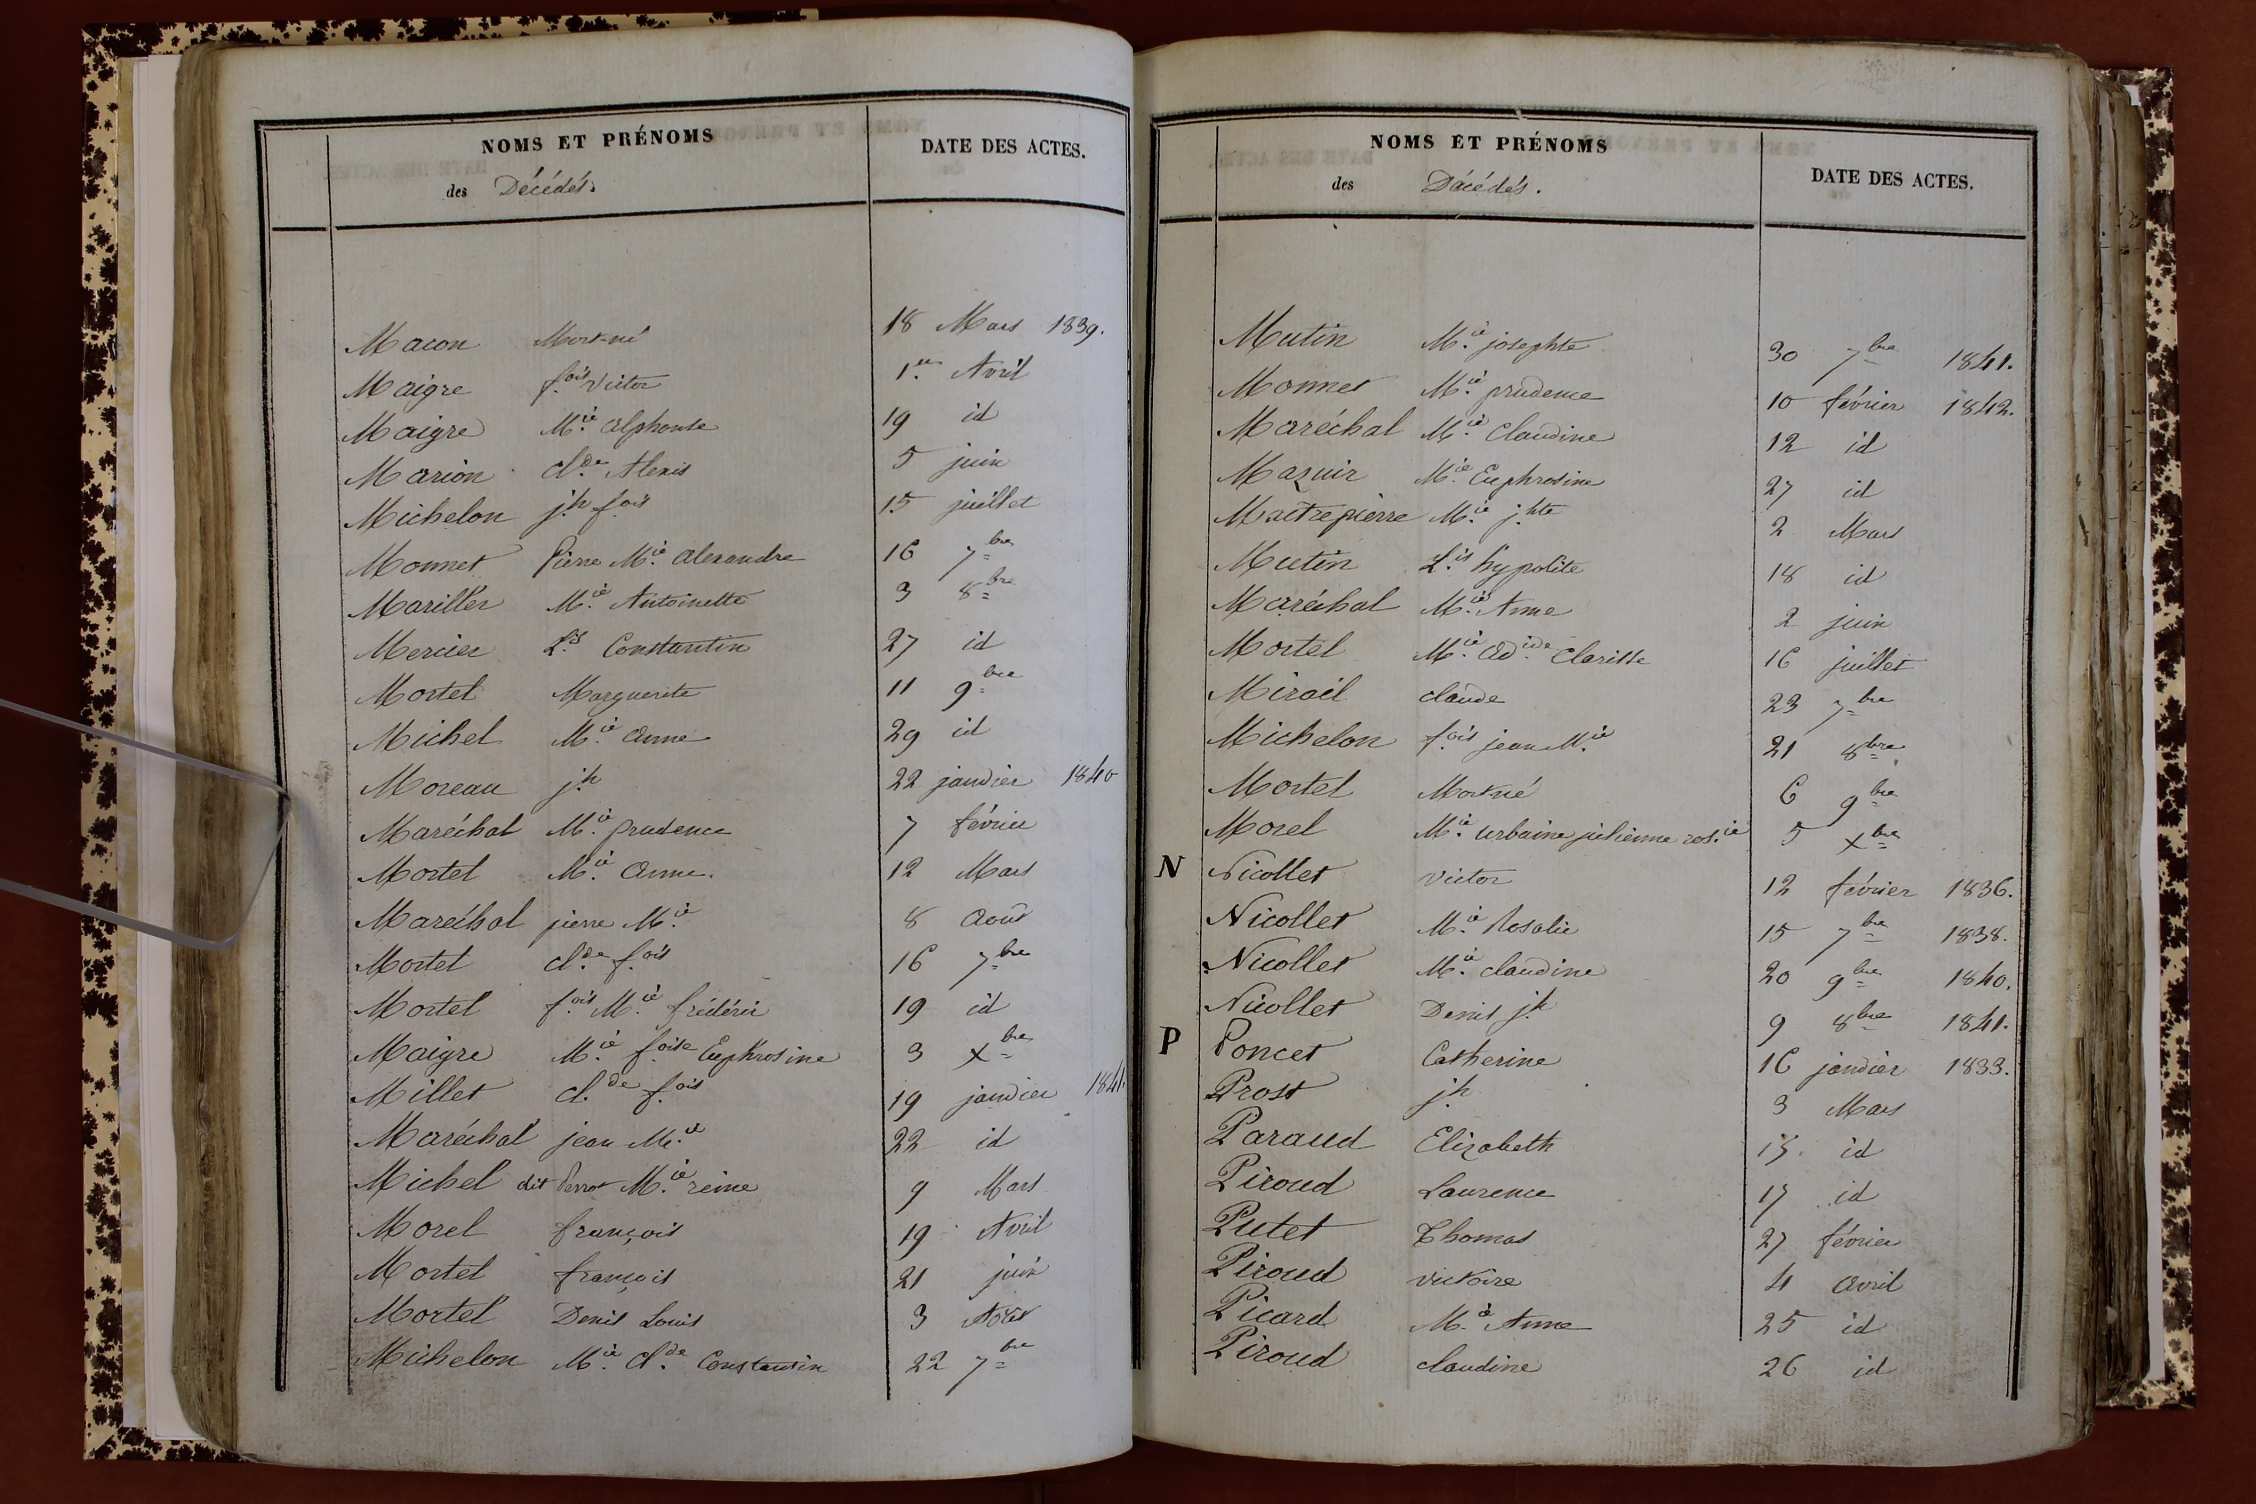 NOMS ET PRÉNOMS DATE DES ACTES.
des Décédés.
Macon Mort-né 18 Mars 1839.
Maigre f.ois Victor 1.er Avril
Maigre M.ie alphonse 19 id
Marion cl.de Alexis 5 juin
Michelon j.h f.ois 15 juillet
Monnet Pierre M.ie alexandre 16 7bre
Mariller M.ie Antoinette 3 8bre
Mercier L.is Constantin 27 id
Mortel Marguerite 11 9bre
Michel M.ie anne 29 id
Moreau j.h 22 janvier 1840
Maréchal M.ie prudence 7 février
Mortel M.ie anne. 12 Mars
Maréchal pierre M.ie 8 aout
Mortel cl.de f.ois 16 7bre
Mortel f.ois M.ie frédéric 19 id
Maigre M.ie f.oise Euphrosine 3 xbre
Millet cl.de f.ois 19 janvier 1841.
Maréchal jean M.ie 22 id
Michel dit Perrot M.ie reine 9 Mars
Morel françois 19 Avril
Mortel françois 21 juin
Mortel Denis Louis 3 Août
Michelon M.ie Cl.de Constantin 22 7bre
NOMS ET PRÉNOMS DATE DES ACTES.
des Décédés.
Mutin M.ie josephte 30 7bre 1841.
Monnet M.ie prudence 10 février 1842.
Maréchal M.ie Claudine 12 id
Mazuir M.ie Euphrosine 27 id
Maitrepierre M.ie j.hte 2 Mars
Mutin L.is hypolite 18 id
Maréchal M.ie Anne 2 juin
Mortel M.ie ad.ide Clarisse 16 juillet
Mirail claude 23 7bre
Michelon f.ois jean M.ie 21 8bre
Mortel Mort né 6 9bre
Morel M.ie urbaine julienne ros.ie 5 xbre
N Nicollet Victor 12 février 1836.
Nicollet M.ie Rosalie 15 7bre 1838.
Nicollet M.ie claudine 20 9bre 1840.
Nicollet Denis j.h 9 8bre 1841.
P Poncet Catherine 16 janvier 1833.
Prost j.h 3 Mars
Paraud Elizabeth 15. id
Piroud Laurence 17 id
Putet Thomas 27 février
Piroud victoire 4 avril
Picard M.ie Anne 25 id
Piroud claudine 26 id